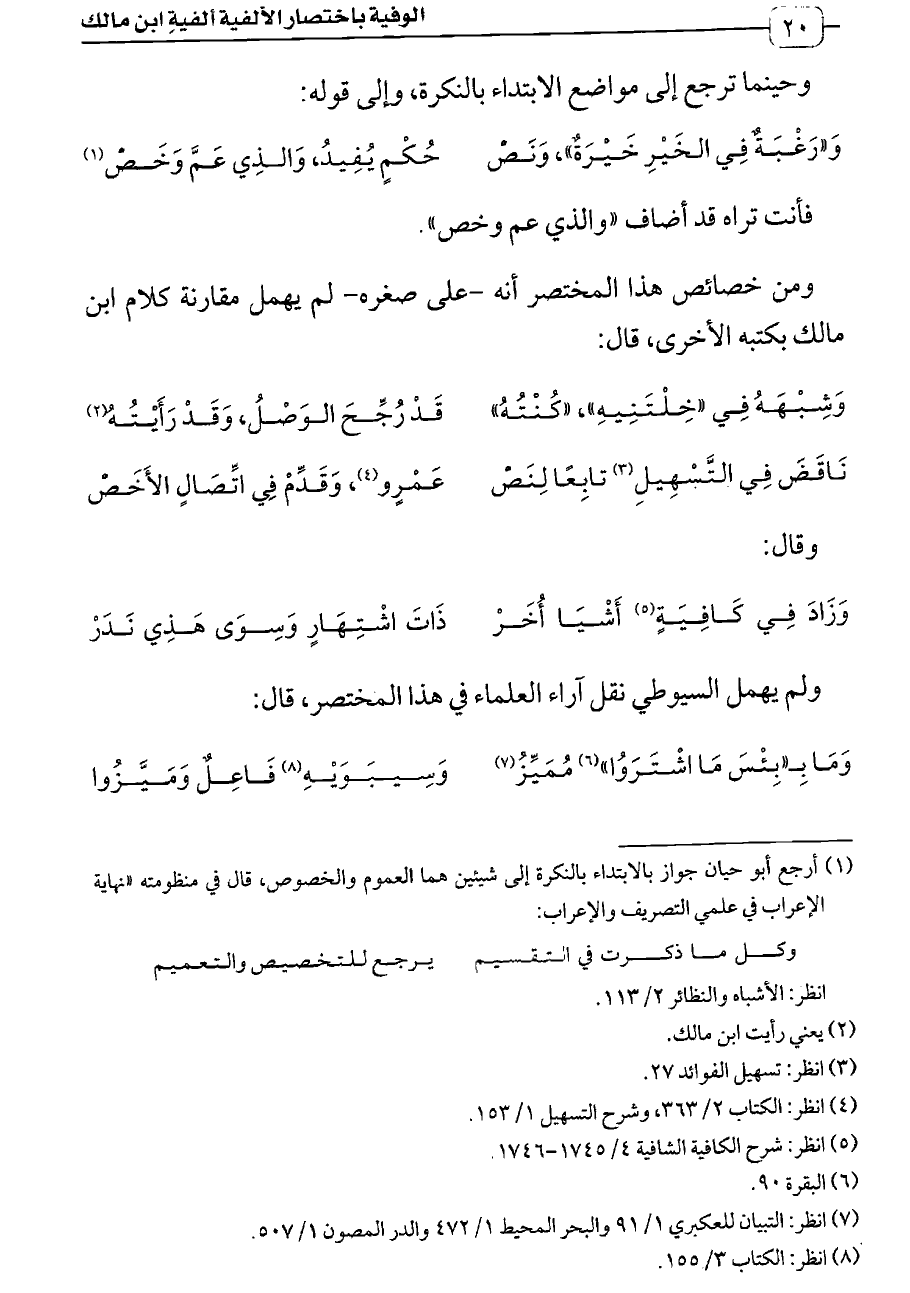 ٢٠ الوفية باختصار الألفية ألفيةِ ابن مالك
وحينما ترجع إلى مواضع الابتداء بالنكرة، وإلى قوله:
وَ«رَغْبَةٌ فِي الخَيْرِ خَيْرَةٌ»، وَنَصْ حُكْمٍ يُفِيدُ، وَالذِي عَمَّ وَخَصْ(١)
فأنت تراه قد أضاف «والذي عم وخص».
ومن خصائص هذا المختصر أنه -على صغره- لم يهمل مقارنة كلام ابن
مالك بكتبه الأخرى، قال:
وَشِبْهَهُ فِي «خِلْتَنِيهِ»، «كُنْتُهُ» قَدْ رُجِّحَ الوَصْلُ، وَقَدْ رَأَيْتُهُ(٢)
نَاقَضَ فِي التَّسْهِيلِ(٣) تابِعًا لِنَصْ عَمْرٍو(٤)، وَقَدِّمْ فِي اتِّصَالٍ الأَخَصْ
وقال:
وَزَادَ فِي كَافِيَةٍ(٥) أَشْيَا أُخَرْ ذَاتَ اشْتِهَارٍ وَسِوَى هَذِي نَدَرْ
ولم يهمل السيوطي نقل آراء العلماء في هذا المختصر، قال:
وَمَا بِـ«بِئْسَ مَا اشْتَرَوُا»(٦) مُمَيِّزُ(٧) وَسِيبَوَيْهِ(٨) فَاعِلٌ وَمَيَّزُوا
(١) أرجع أبو حيان جواز بالابتداء بالنكرة إلى شيئين هما العموم والخصوص، قال في منظومته «نهاية
الإعراب في علمي التصريف والإعراب:
وكل ما ذكرت في التقسيم يرجع للتخصيص والتعميم
انظر: الأشباه والنظائر ٢/ ١١٣.
(٢) يعني رأيت ابن مالك.
(٣) انظر: تسهيل الفوائد ٢٧.
(٤) انظر: الكتاب ٢/ ٣٦٣، وشرح التسهيل ١/ ١٥٣.
(٥) انظر: شرح الكافية الشافية ٤/ ١٧٤٥-١٧٤٦.
(٦) البقرة ٩٠.
(٧) انظر: التبيان للعكبري ١/ ٩١ والبحر المحيط ١/ ٤٧٢ والدر المصون ١/ ٥٠٧.
(٨) انظر: الكتاب ٣/ ١٥٥.